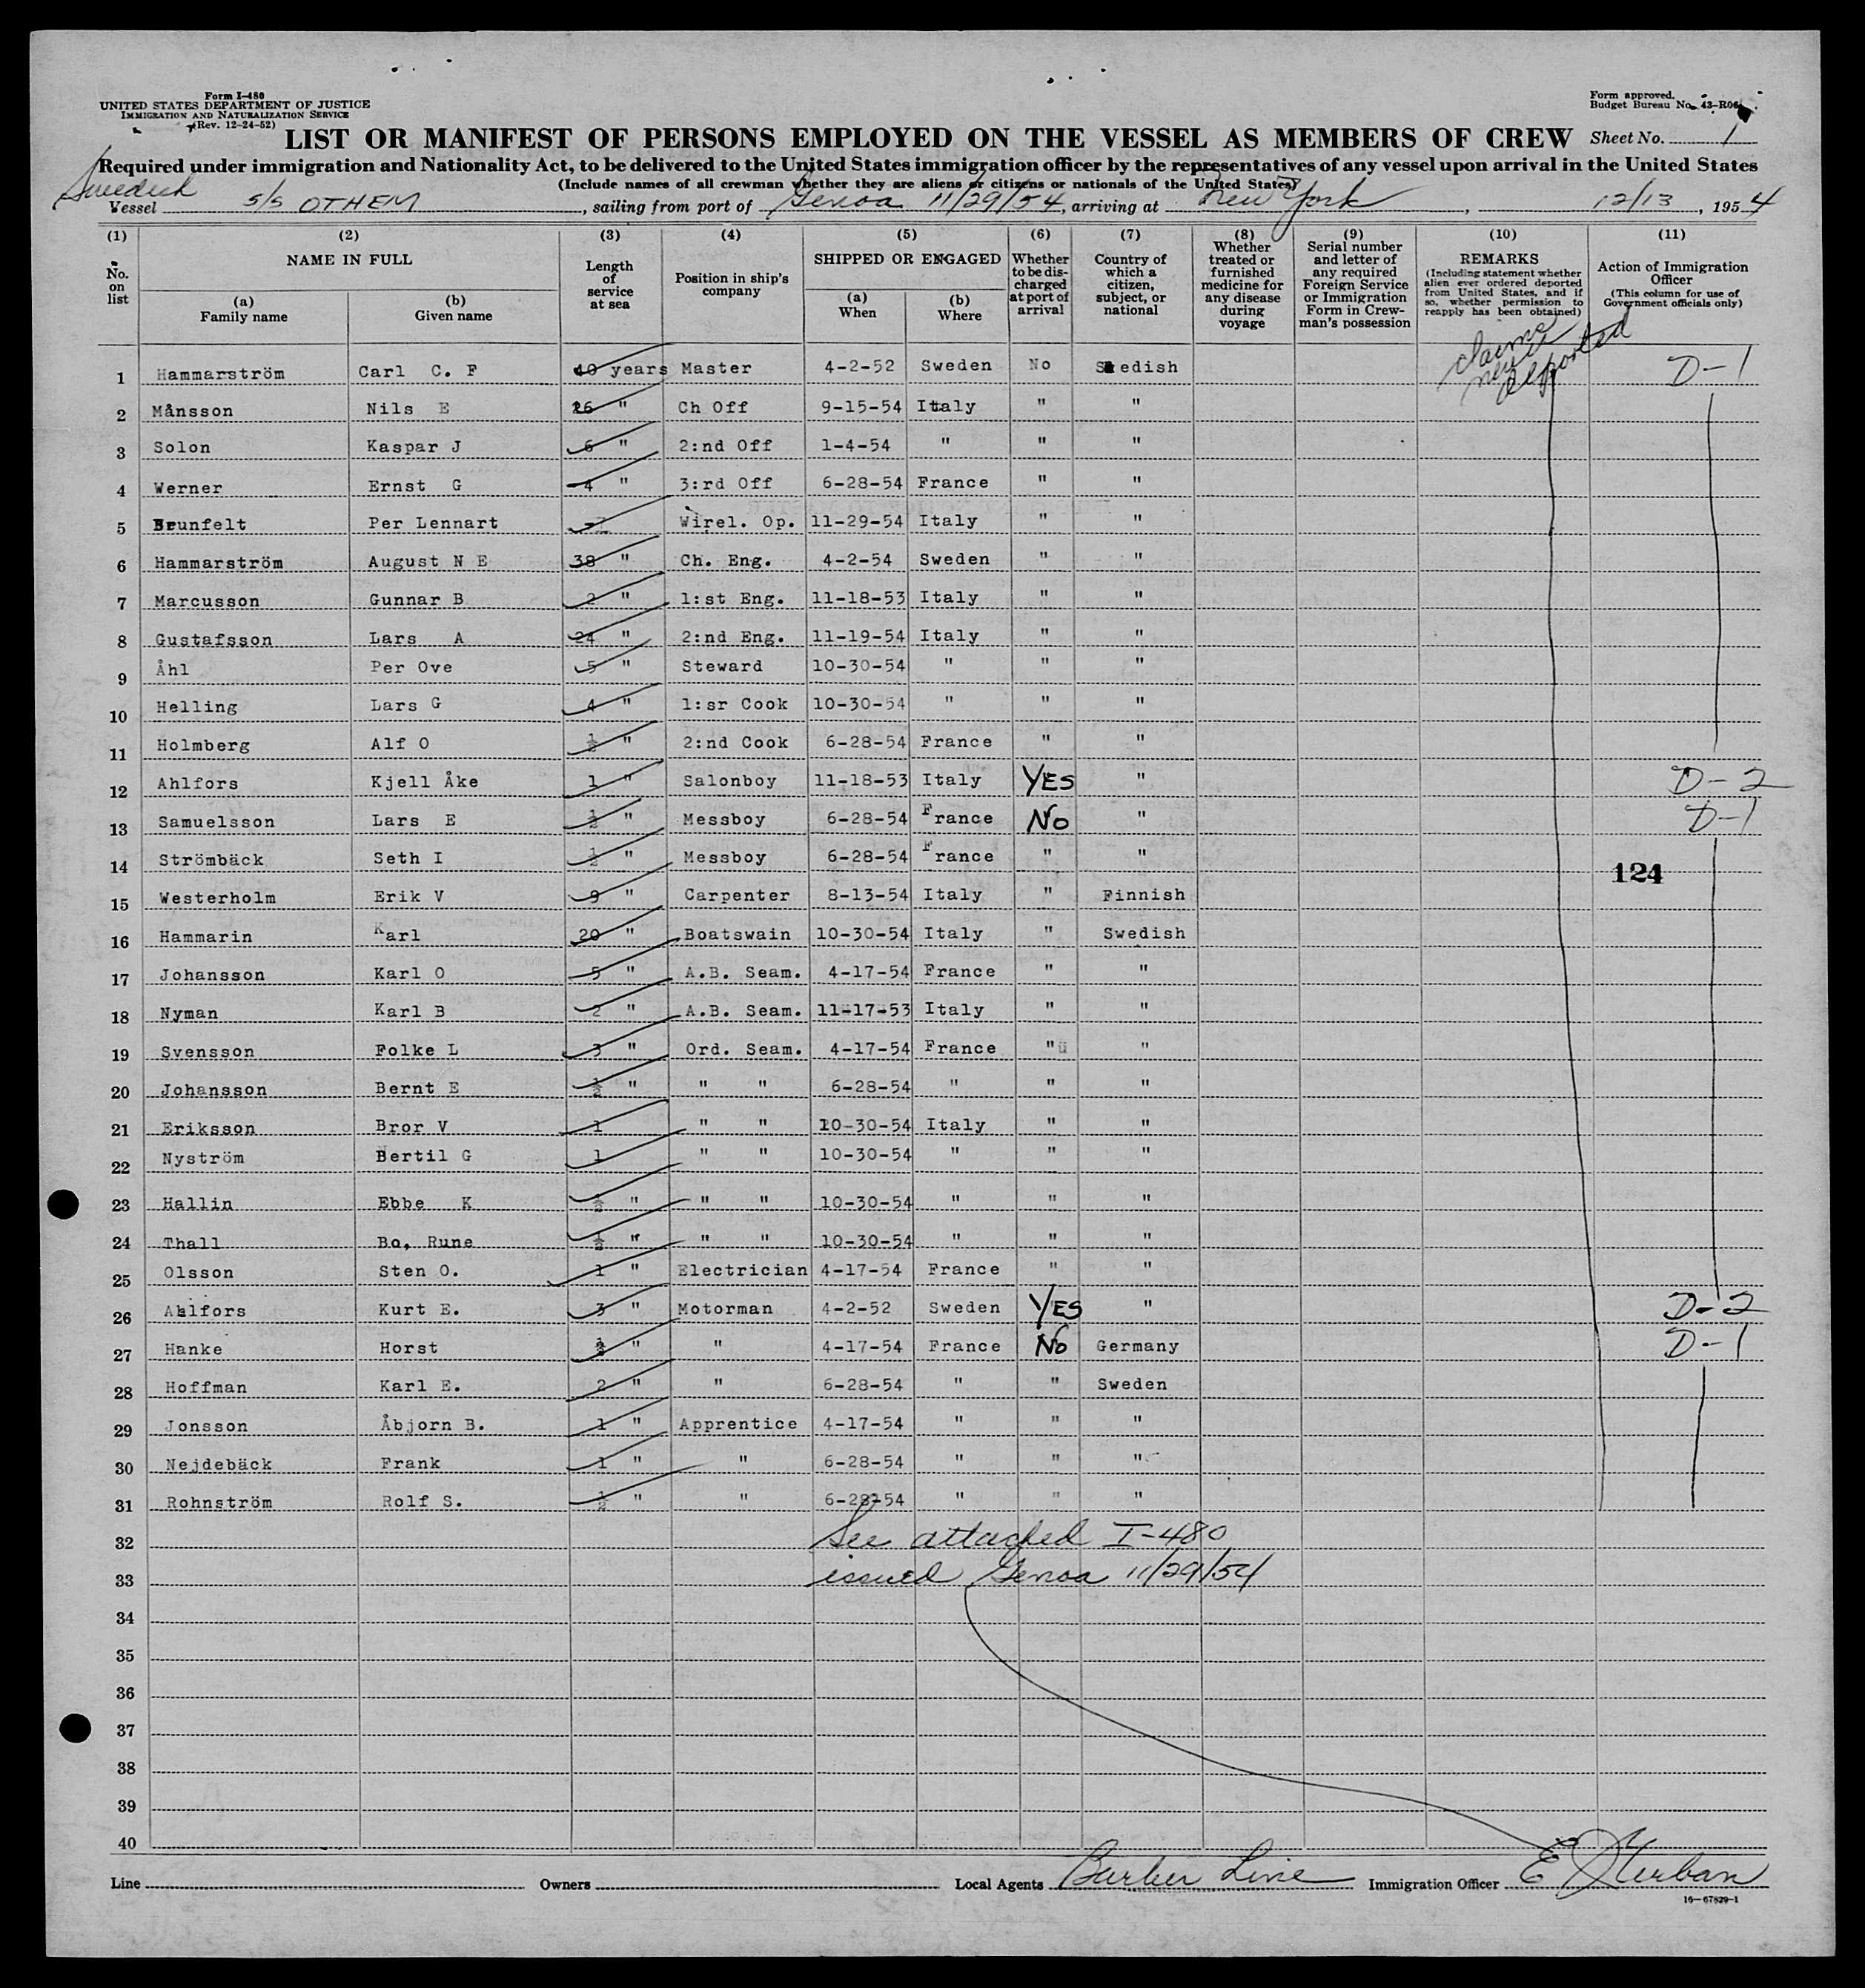 Form I-480
UNITED STATES DEPARTMENT OF JUSTICE
IMMIGRATION AND NATURALIZATION SERVICE
(Rev. 12-24-52)
Form approved.
Budget Bureau No. 43-R06
LIST OR MANIFEST OF PERSONS EMPLOYED ON THE VESSEL AS MEMBERS OF CREW Sheet No. 1
Required under immigration and Nationality Act, to be delivered to the United States immigration officer by the representatives of any vessel upon arrival in the United States
(Include names of all crewman whether they are aliens or citizens or nationals of the United States)
Swedish
Vessel S/S OTHEM, sailing from port of Genoa 11/29/54, arriving at New York, 12/13, 1954
(1) (2) (3) (4) (5) (6) (7) (8) (9) (10) (11)
No. on list
NAME IN FULL
(a) Family name
(b) Given name
Length of service at sea
Position in ship's company
SHIPPED OR ENGAGED
(a) When
(b) Where
Whether to be discharged at port of arrival
Country of which a citizen, subject, or national
Whether treated or furnished medicine for any disease during voyage
Serial number and letter of any required Foreign Service or Immigration Form in Crewman's possession
REMARKS
(Including statement whether alien ever ordered deported from United States, and if so, whether permission to reapply has been obtained)
Action of Immigration Officer
(This column for use of Government officials only)
claims never deported
1 Hammarström Carl C. F 40 years Master 4-2-52 Sweden No Swedish D-1
2 Månsson Nils E 26 " Ch Off 9-15-54 Italy " "
3 Solon Kaspar J 6 " 2:nd Off 1-4-54 " " "
4 Werner Ernst G 4 " 3:rd Off 6-28-54 France " "
5 Brunfelt Per Lennart Wirel. Op. 11-29-54 Italy " "
6 Hammarström August N E 38 " Ch. Eng. 4-2-54 Sweden " "
7 Marcusson Gunnar B 2 " 1:st Eng. 11-18-53 Italy " "
8 Gustafsson Lars A 24 " 2:nd Eng. 11-19-54 Italy " "
9 Åhl Per Ove 5 " Steward 10-30-54 " " "
10 Helling Lars G 4 " 1:sr Cook 10-30-54 " " "
11 Holmberg Alf O ½ " 2:nd Cook 6-28-54 France " "
12 Ahlfors Kjell Åke 1 " Salonboy 11-18-53 Italy YES " D-2
13 Samuelsson Lars E ½ " Messboy 6-28-54 France No " D-1
14 Strömbäck Seth I ½ " Messboy 6-28-54 France " "
124
15 Westerholm Erik V 9 " Carpenter 8-13-54 Italy " Finnish
16 Hammarin Karl 20 " Boatswain 10-30-54 Italy " Swedish
17 Johansson Karl O 5 " A.B. Seam. 4-17-54 France " "
18 Nyman Karl B 2 " A.B. Seam. 11-17-53 Italy " "
19 Svensson Folke L 3 " Ord. Seam. 4-17-54 France " "
20 Johansson Bernt E ½ " " " 6-28-54 " " "
21 Eriksson Bror V 1 " " 10-30-54 Italy " "
22 Nyström Bertil G 1 " " 10-30-54 " " "
23 Hallin Ebbe K ½ " " " 10-30-54 " " "
24 Thall Bo, Rune ½ " " " 10-30-54 " " "
25 Olsson Sten O. 1 " Electrician 4-17-54 France " "
26 Ahlfors Kurt E. 3 " Motorman 4-2-52 Sweden YES " D-2
27 Hanke Horst " " 4-17-54 France No Germany D-1
28 Hoffman Karl E. 2 " " 6-28-54 " " Sweden
29 Jonsson Åbjorn B. 1 " Apprentice 4-17-54 " " "
30 Nejdebäck Frank 1 " " 6-28-54 " " "
31 Rohnström Rolf S. ½ " " 6-28-54 " " "
32 See attached I-480
33 issued Genoa 11/29/54
34
35
36
37
38
39
40
Line Owners Local Agents Barber Line Immigration Officer
16-67829-1